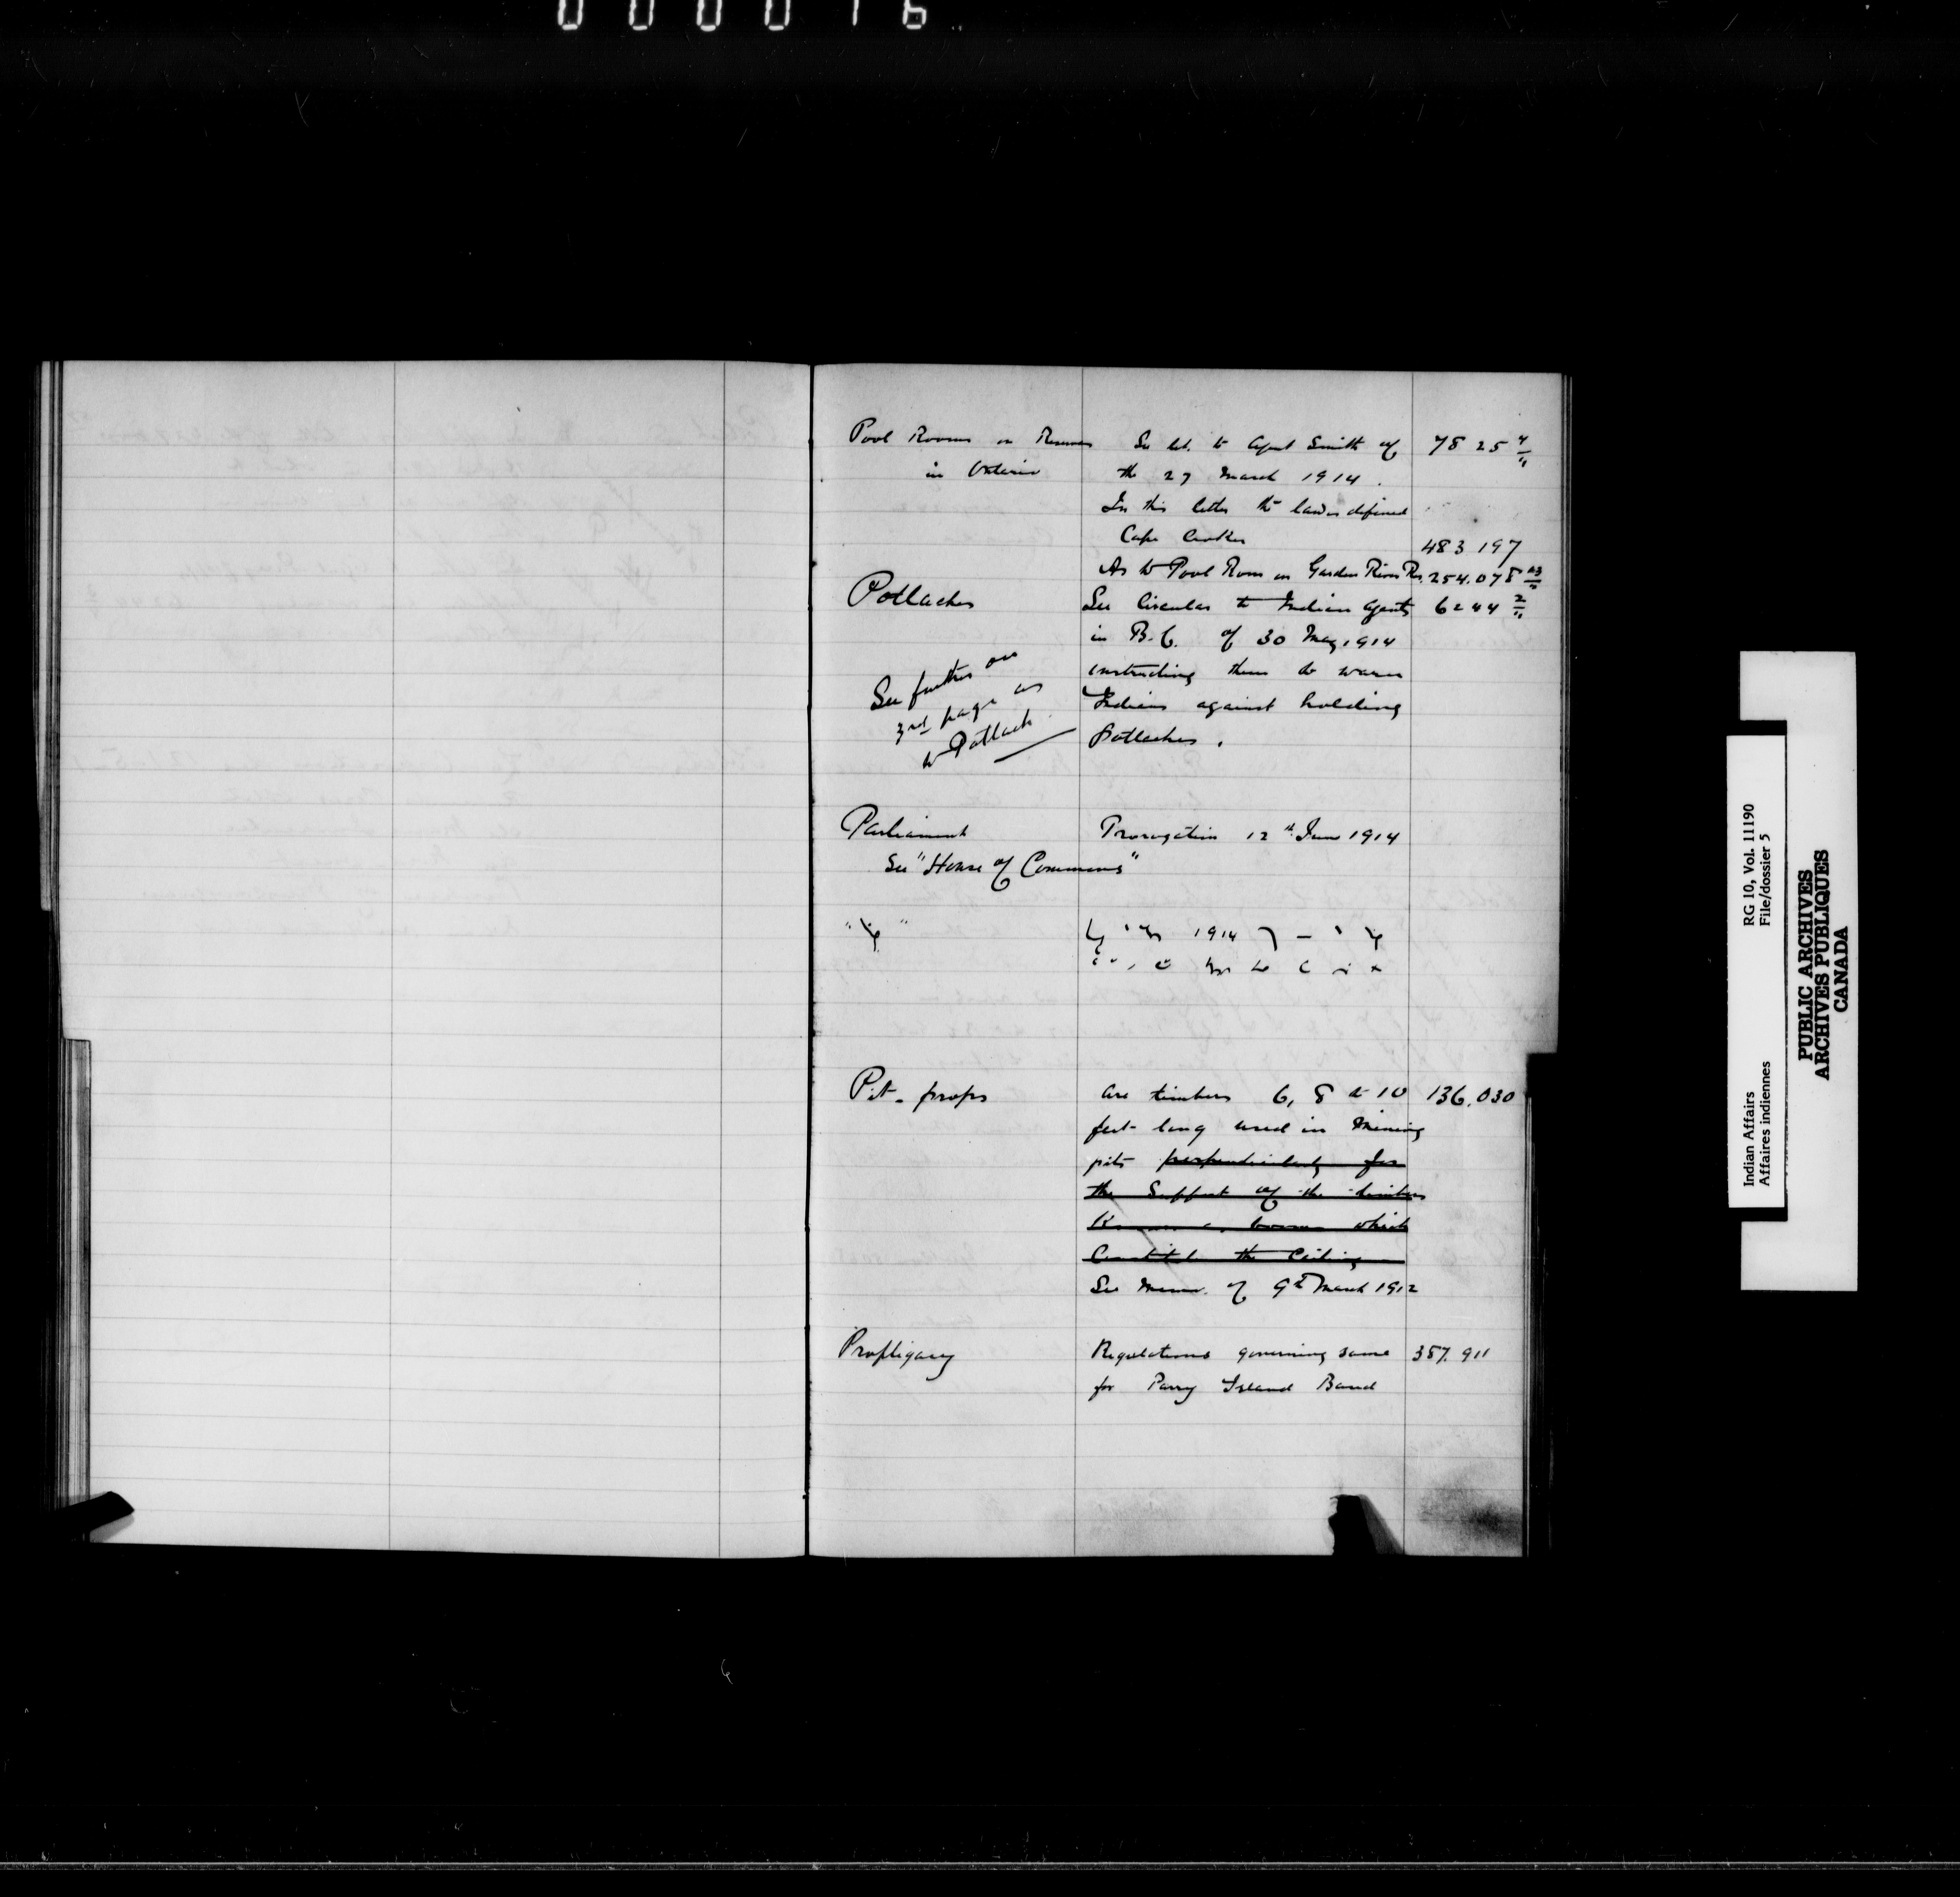 000016
Pool Rooms on Reserves See let. to Agent Smith of 7825 4/11
in Ontario the 27 March 1914.
In this letter the law is defined
Cape Croker 483 197
As to Pool Room on Garden River Res. 254.078 23/11
Potlaches See Circular to Indian Agents 6244 2/11
in B.C. of 30 May 1914
See further on instructing them to warn
3rd page as Indians against holding
to Potlach Potlaches.
Parliament Prorogation 12th June 1914
See "House of Commons"
1914
Pit-props are timbers 6, 8 & 10 136.030
feet long used in Mining
pits perpendicularly for
the Support of the timbers
which
Constitute the Ceiling
See Memo. of 9th March 1912
Profligacy Regulations governing same 357.911
for Parry Island Band
Indian Affairs RG 10, Vol. 11190
Affaires indiennes File/dossier 5
PUBLIC ARCHIVES
ARCHIVES PUBLIQUES
CANADA